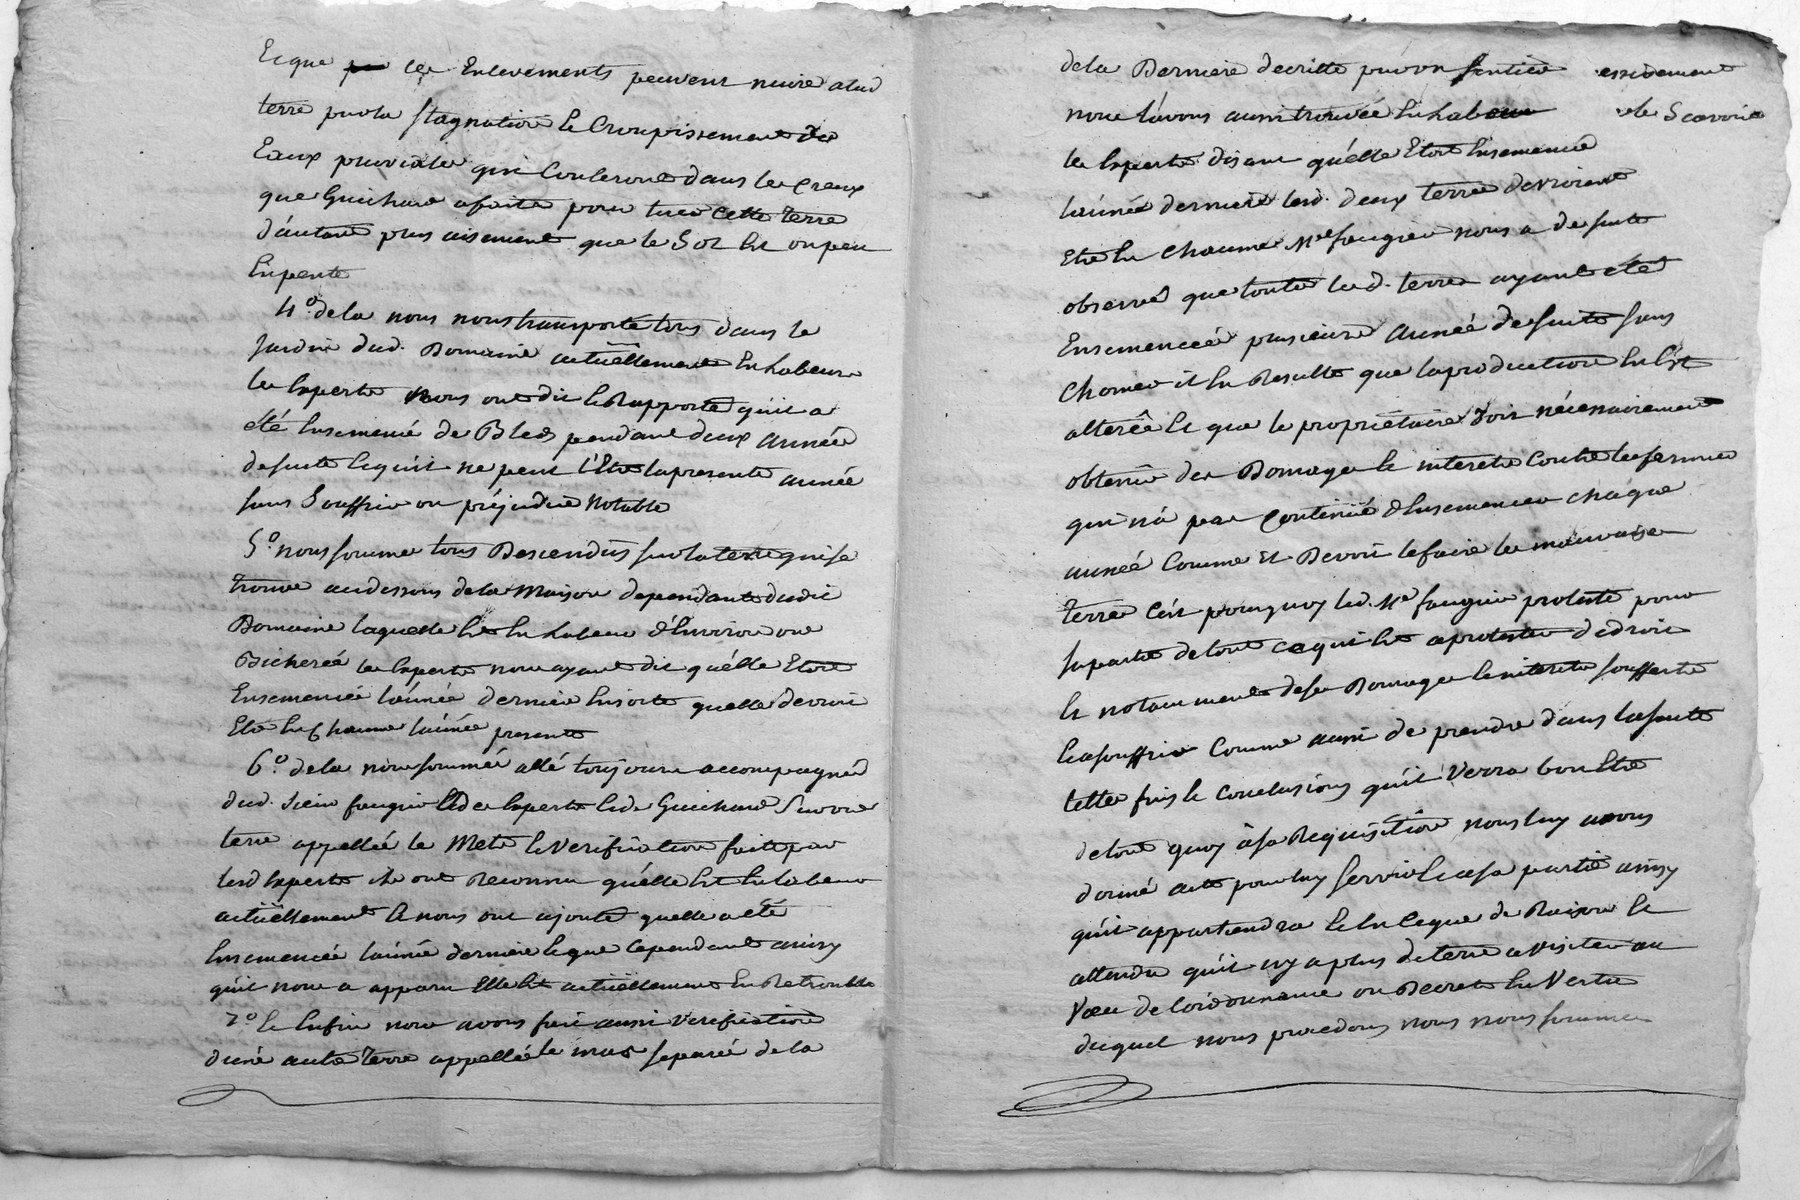 Eique ces Enlevements peuvent nuire alad
terre parla stagnation le Croupissement des
Eaux pluviales qui Couleront dans les Creux
que Guichard afaits pour tirer cette terre
d'autant plus aisement que le Sol Est unpeu
Enpente
4° dela nous nous transportés tous dans le
Jardin dud. Domaine actuellement En labeur
les Experts nous ont dit & Rapporté qu'il a
été Ensemencé de Bled pendant deux années
desuite Equ'il ne peut l'Etre lapresente année
sans Souffrir un préjudice Notable
5° nous somme tous Descendus surlaterre quise
trouve audessous dela Maison dependante dudit
Domaine laquelle Est En labeur d'Environ une
Bicherée les Experts nous ayant dit qu'elle Etoit
Ensemencée l'année derniere Ensorte quelle devroit
Etre En Chaume l'année presente
6° dela nous sommes allé toujours accompagnés
dud. Sieur faugier & des Experts & de Guichard Sur une
terre appellée le Mets & Verification faite par
lesd Experts ils ont Reconnu qu'elle Est En labeur
actuellement & nous ont ajouté quelle a eté
Ensemencée l'année derniere & que cependant ainsy
quil nous a apparu Elle Est actuellement En Retrouble
7° & Enfin nous avons fait aussi verification
d'une autre terre appellée le mas separée de la
dela Derniere decritte par un sentier
nous l'avons aussi trouvée En labeur
les Experts disant qu'elle Etoit Ensemencée
l'année derniere lesd. deux terres devroient
Etre En Chaume. Me faugier nous a de suite
observé que toutes lesd. terres ayant été
Ensemencées plusieurs années desuite sans
Chomer il En Resulte que laproduction En Est
alterée & que le proprietaire doit nécessairement
obtenir des Domages & interets Contre les fermiers
qui n'a pas Continué d'Ensemencer chaque
année Comme il Devoit lefaire les mauvaises
terres C'est pourquoy led. Me faugier proteste pour
sapartie detout cequi Est aprotester dedroit
& notamment deses Domages & interets soufferts
& asouffrir Comme aussi de prendre dans lasuite
telles fins & Conclusions qu'il Verra bon Etre
detout quoy àsa Requisition nous luy avons
donné acte pour luy servir & asa partie ainsy
qu'il appartiendra & En Ceque de Raison &
attendu qu'il n'y a plus deterre avisiter au
Vœu de l'ordonnance ou Decret En Vertu
duquel nous procedons nous nous sommes